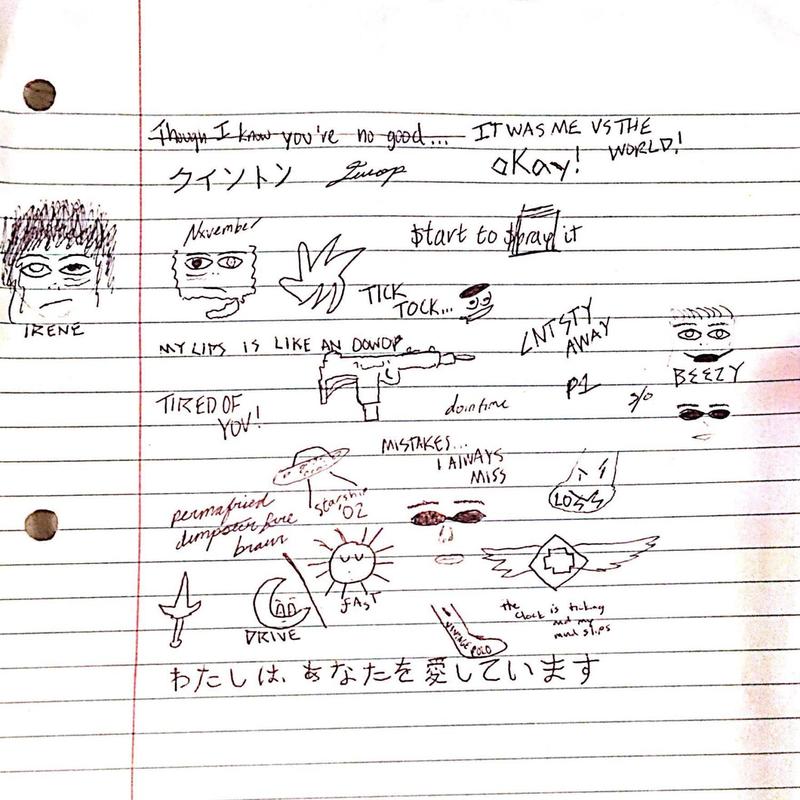 Though I know you're no good... IT WAS ME VS THE
WORLD!
クイントン
okay!
November
$tart to $pray it
TICK
TOCK...
IRENE
MY LIPS IS LIKE AN
AWAY
BEEZY
P1
TIRED OF
YOU!
dointime
MISTAKES...
I ALWAYS
MISS
starship
'02
permafried
dumpster fire
brain
LOSS
FAST
DRIVE
the
clock is ticking
and my
mind slips
VINTAGE POLO
わたしは、あなたを愛しています